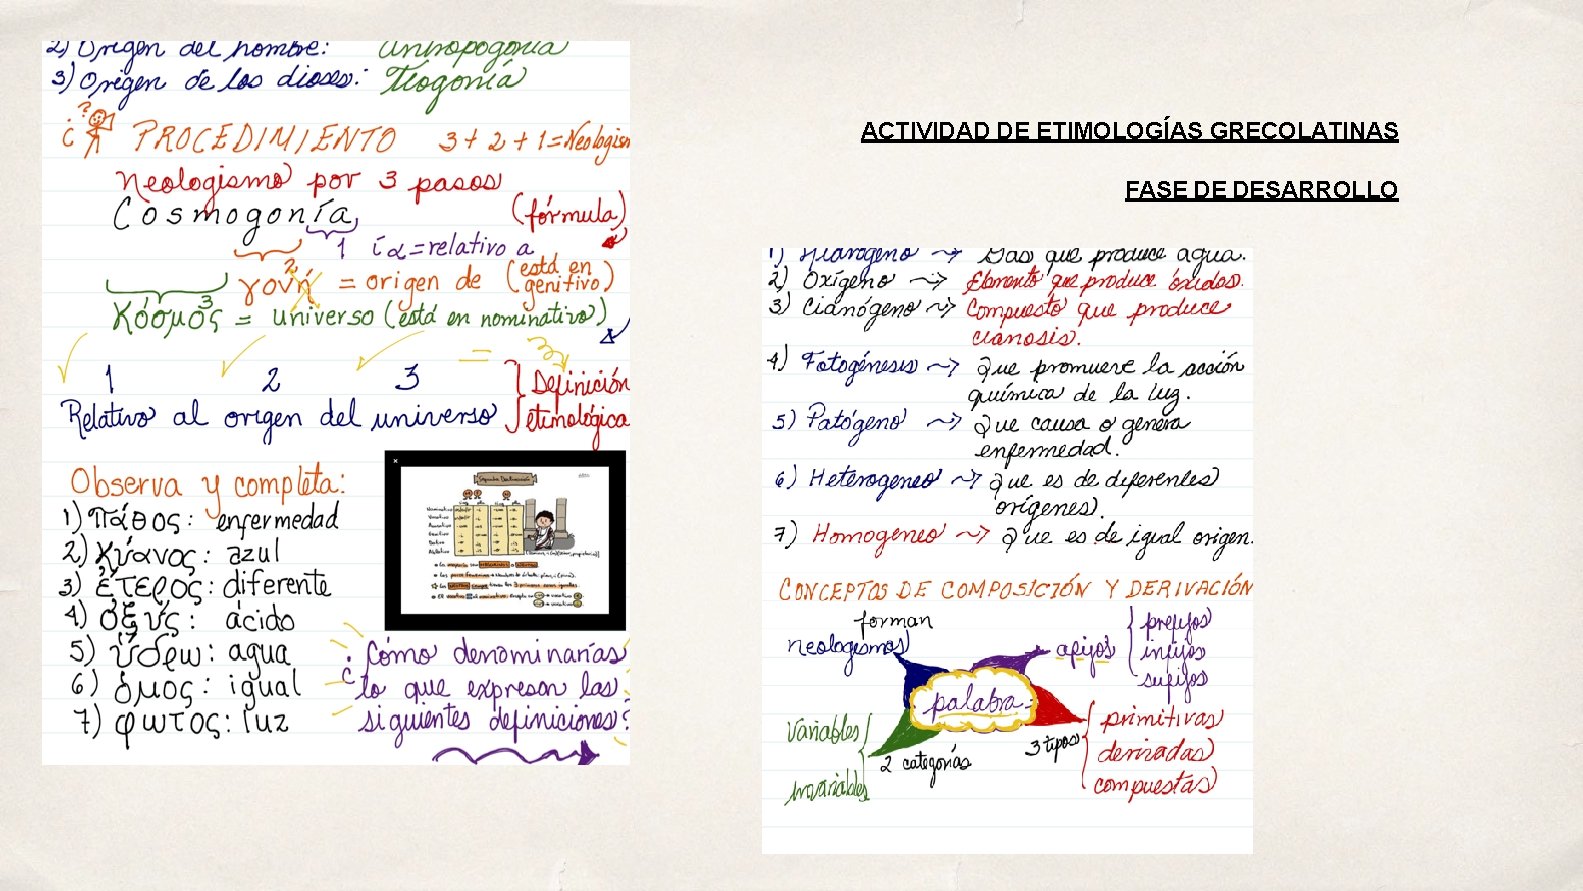 2) Origen del hombre: Antropogonía
3) Origen de los dioses: Teogonía
¿? PROCEDIMIENTO 3 + 2 + 1 = Neologism
Neologismo por 3 pasos
Cosmogonía (fórmula)
1 ία = relativo a
2
γονή = origen de (está en genitivo)
3
Κόσμος = universo (está en nominativo)
1 2 3 =
Relativo al origen del universo } Definición etimológica
Observa y completa:
1) πάθος: enfermedad
2) κύανος: azul
3) ἕτερος: diferente
4) οξύς: ácido
5) ύδρω: agua
6) όμος: igual
7) φωτος: luz
Segunda Declinación
Nominativo
Vocativo
Acusativo
Genitivo
Dativo
Ablativo
¿Cómo denominarías
lo que expresan las
siguientes definiciones?
ACTIVIDAD DE ETIMOLOGÍAS GRECOLATINAS
FASE DE DESARROLLO
1) Hidrógeno ⤳ Gas que produce agua.
2) Oxígeno ⤳ Elemento que produce óxidos.
3) Cianógeno ⤳ Compuesto que produce
cianosis.
4) Fotogénesis ⤳ Que promueve la acción
química de la luz.
5) Patógeno ⤳ Que causa o genera
enfermedad.
6) Heterogeneo ⤳ Que es de diferentes
orígenes).
7) Homogeneo ⤳ Que es de igual origen.
CONCEPTOS DE COMPOSICIÓN Y DERIVACIÓN
forman
neologismos
afijos { prefijos
infijos
sufijos
palabra
Variables
invariables
2 categorías
3 tipos { primitivas
derivadas
compuestas